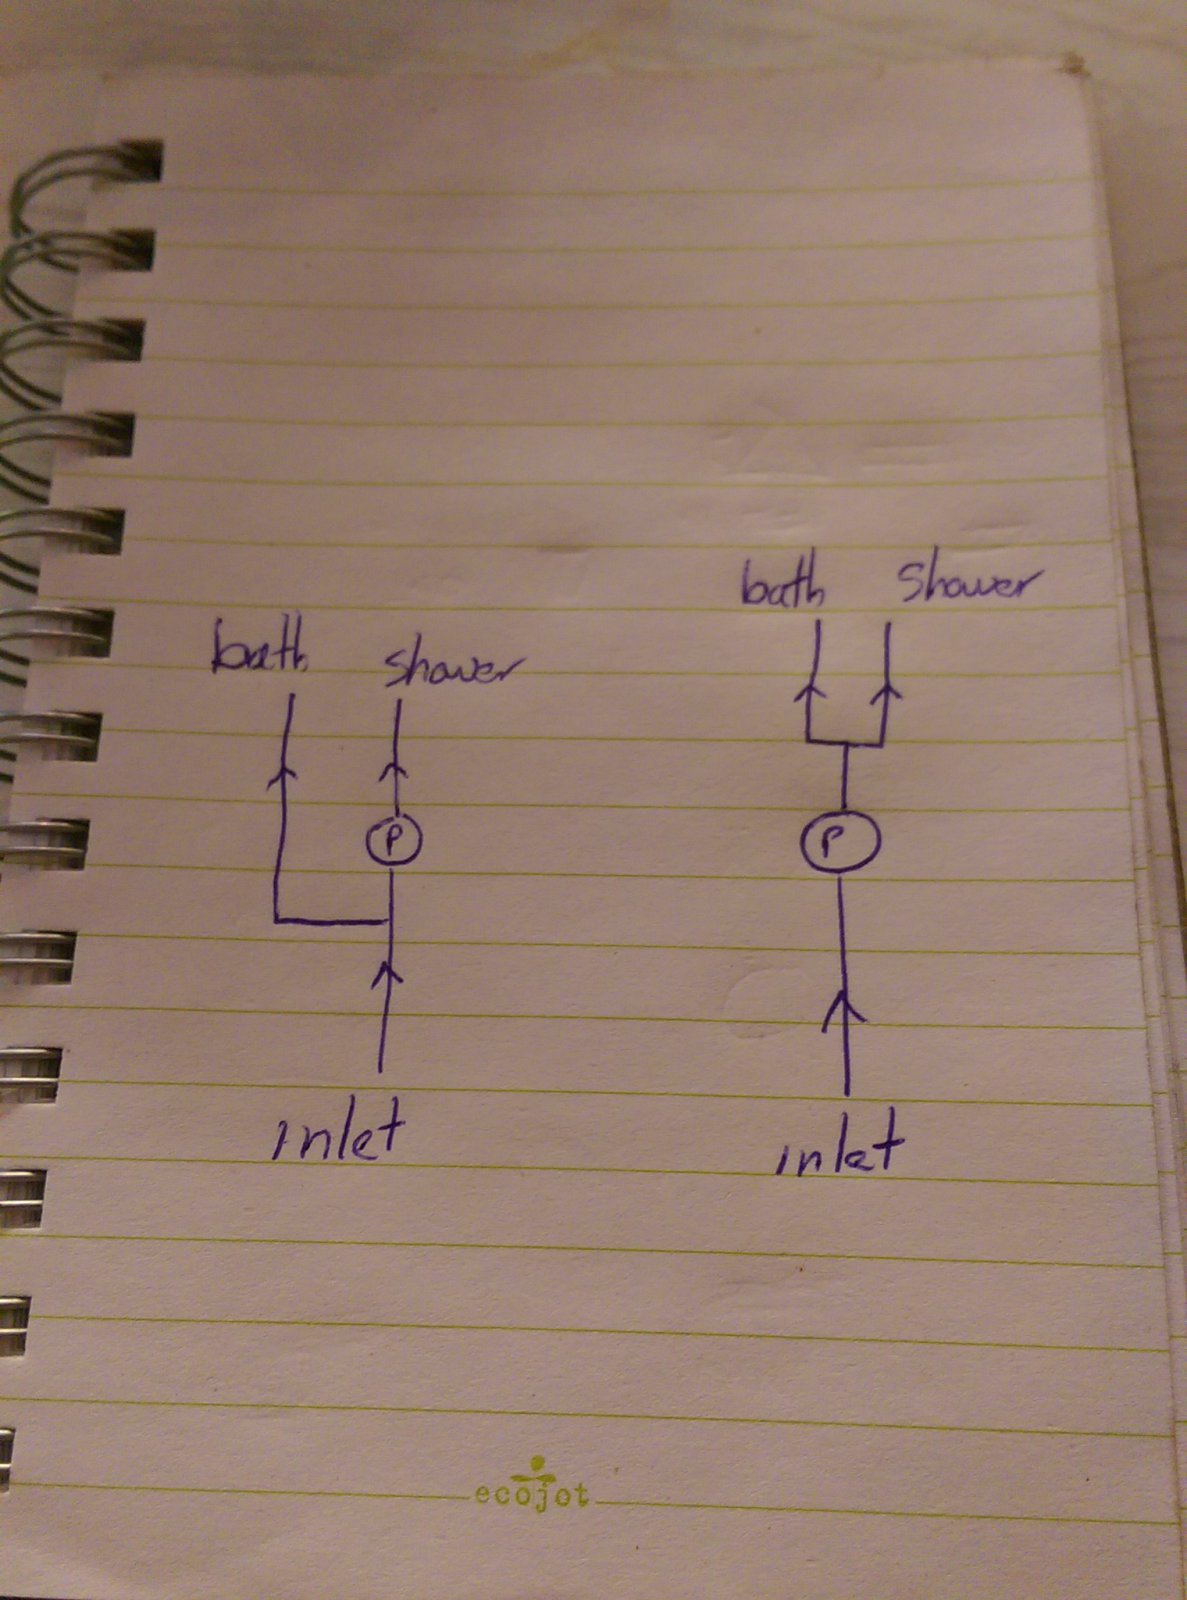 bath shower
P
inlet
bath Shower
P
inlet
ecojot